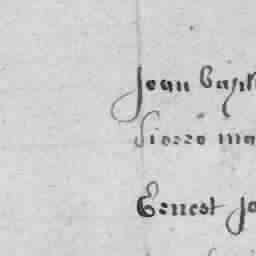 Jean Bapt
Pierre ma
Ernest Jo